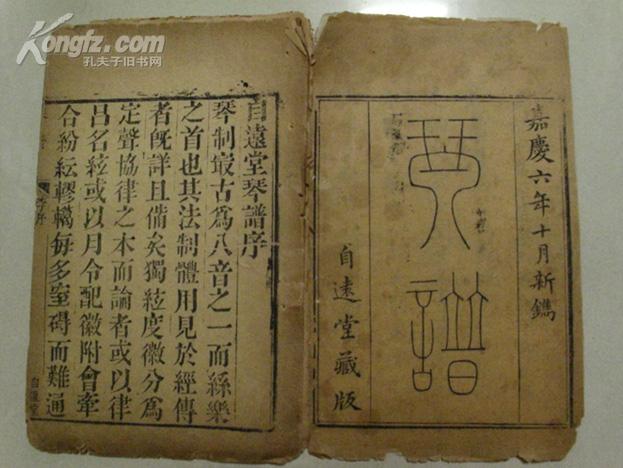 Kongfz.com
孔夫子旧书网
嘉慶六年十月新鐫
琴譜
自遠堂藏版
自遠堂琴譜序
琴制㝡古爲八音之一而絲樂
之首也其法制體用見於經傳
者旣詳且備矣獨絃度徽分爲
定聲協律之本而論者或以律
呂名絃或以月令配徽附會牽
合紛紜轇轕每多窒碍而難通
自遠堂